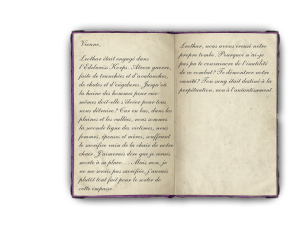 Vienne,
Lothar était engagé dans
l'Edelweiss Korps. Atroce guerre,
faite de tranchées et d'avalanches,
de chutes et d'engelures. Jusqu'où
la haine des hommes pour eux-
mêmes doit-elle s'élever pour tous
nous détruire? Car en bas, dans les
plaines et les vallées, nous sommes
la seconde ligne des victimes, nous
femmes, épouses et mères, souffrant
le sacrifice vain de la chair de notre
chair. J'aimerais dire que je serais
morte à sa place... Mais non, je
ne me serais pas sacrifiée, j'aurais
plutôt tout fait pour le sortir de
cette impasse.
Lothar, nous avons creusé notre
propre tombe. Pourquoi n'ai-je
pas pu te convaincre de l'inutilité
de ce combat? Te démontrer notre
vanité? Ton sang était destiné à la
perpétuation, non à l'anéantissement.